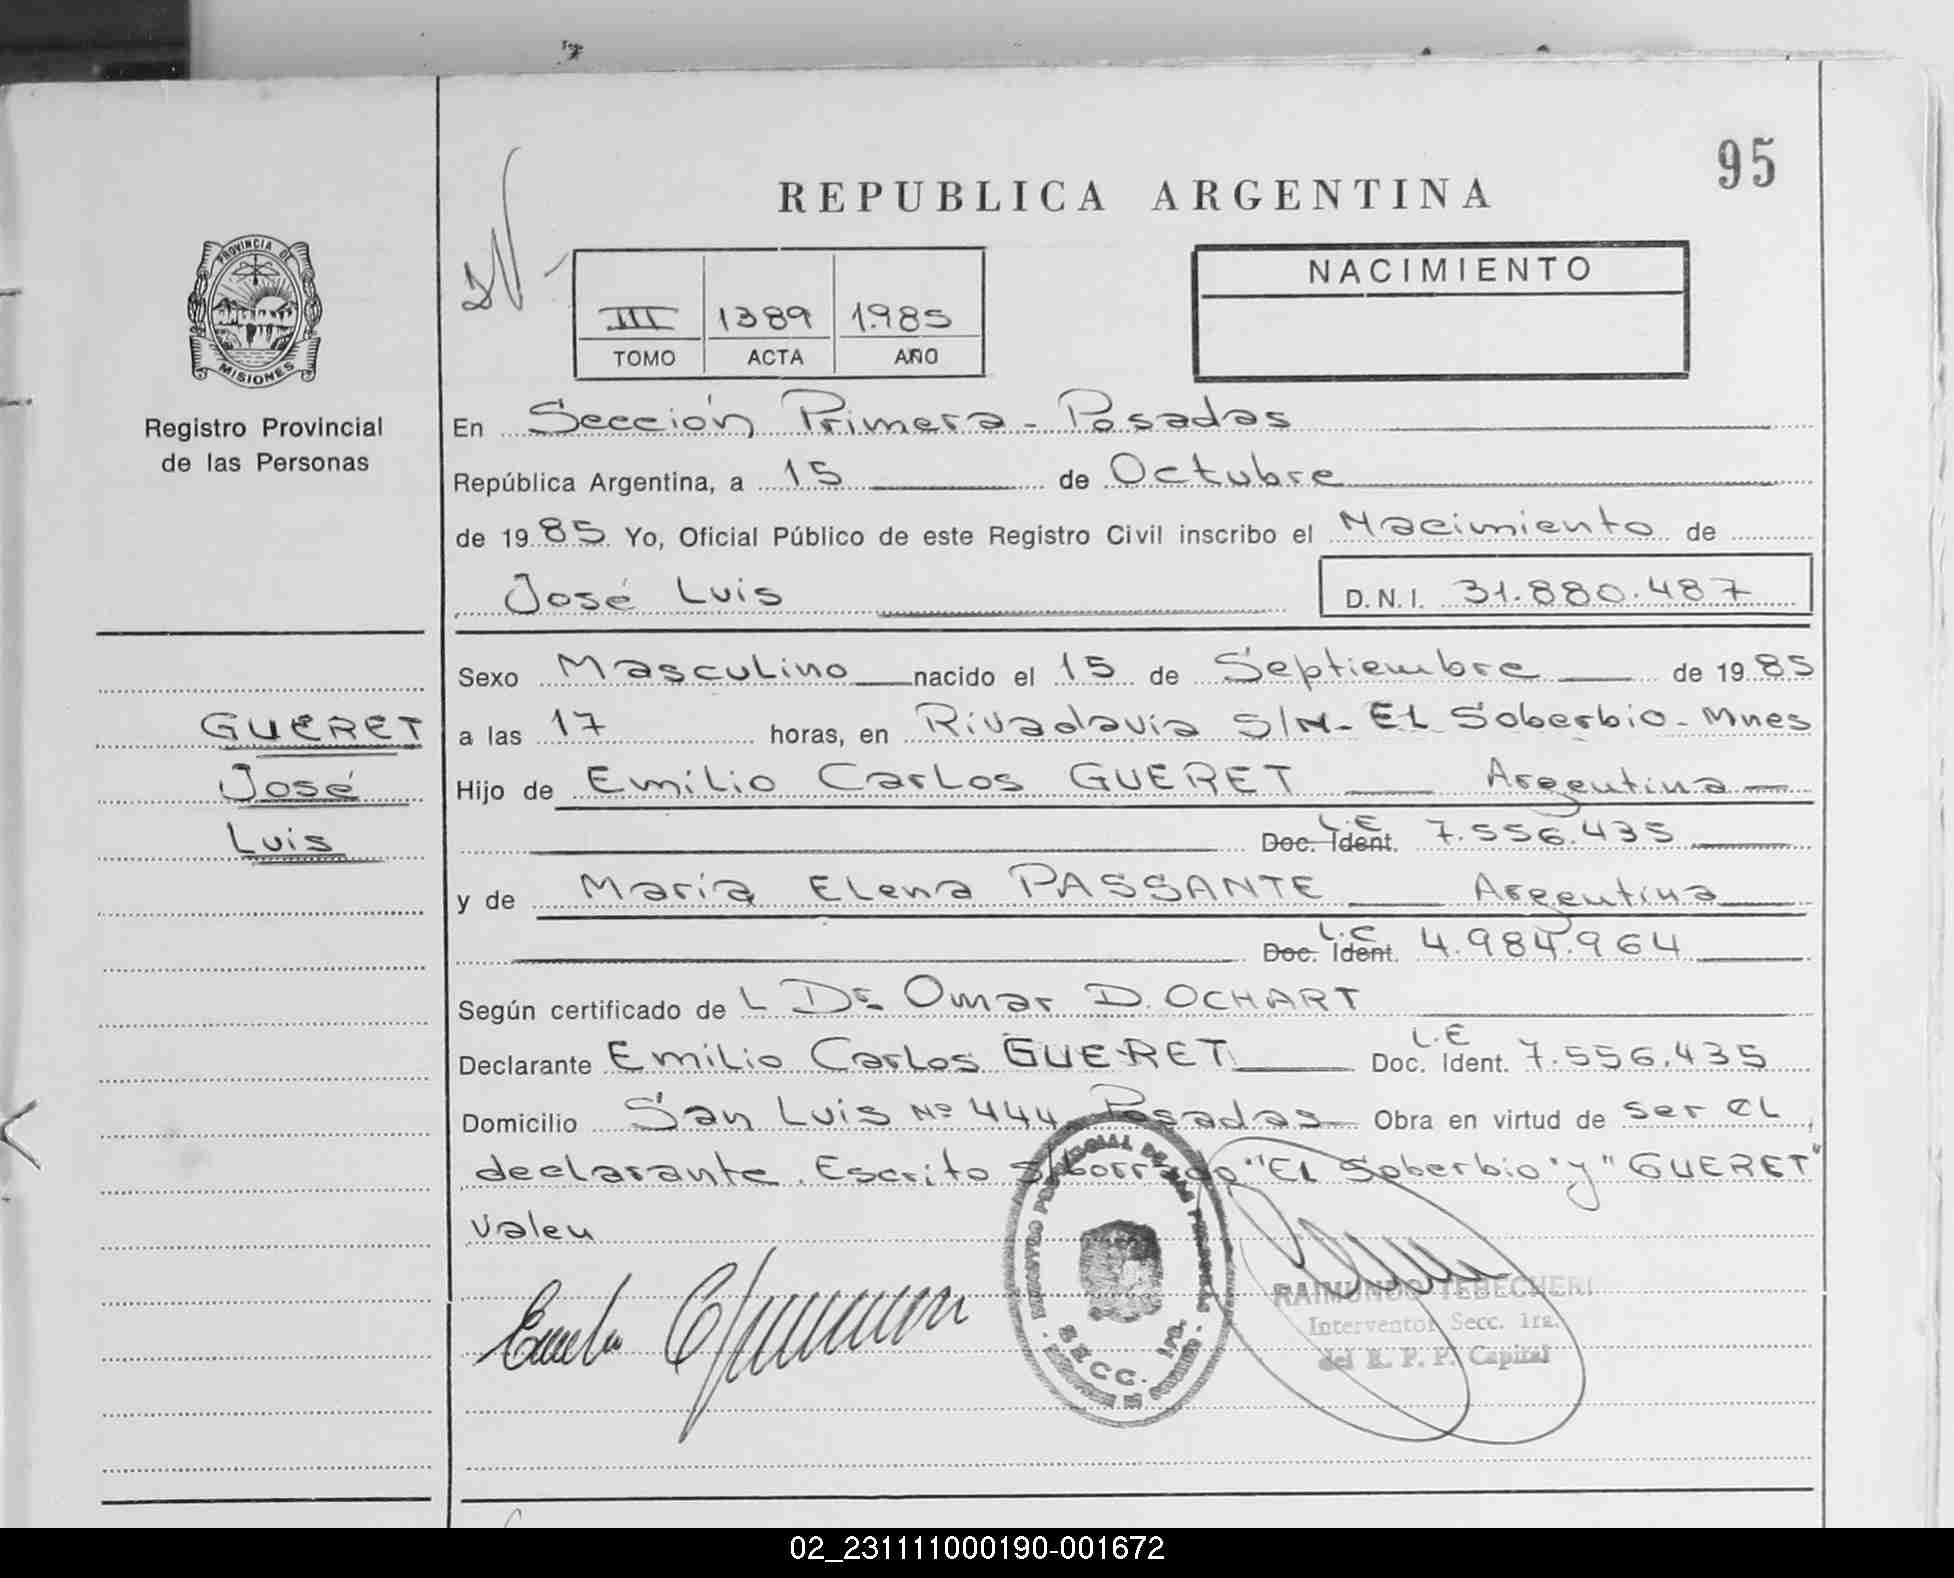 95
REPUBLICA ARGENTINA
PROVINCIA DE
MISIONES
Registro Provincial
de las Personas
III 1389 1.985
TOMO ACTA AÑO
NACIMIENTO
En Sección Primera - Posadas
República Argentina, a 15 de Octubre
de 1985 Yo, Oficial Público de este Registro Civil inscribo el Nacimiento de
José Luis D.N.I. 31.880.487
Sexo Masculino nacido el 15 de Septiembre de 1985
GUERET
José
Luis
a las 17 horas, en Rivadavia S/N - EL Soberbio - Mnes
Hijo de Emilio Carlos GUERET Argentina
Doc. Ident. L.E 7.556.435
y de María Elena PASSANTE Argentina
Doc. Ident. L.C 4.984.964
Según certificado de L Dr Omar D. OCHART
Declarante Emilio Carlos GUERET Doc. Ident. L.E 7.556.435
Domicilio San Luis Nº 444 Posadas Obra en virtud de ser el
declarante. Escrito s/borrado "El Soberbio" y "GUERET"
Valen
REGISTRO PROVINCIAL DE LAS PERSONAS
SECC. 1ra.
RAIMUNDO TEBECHERI
Interventor Secc. 1ra.
del R. P. P. Capital
02_231111000190-001672